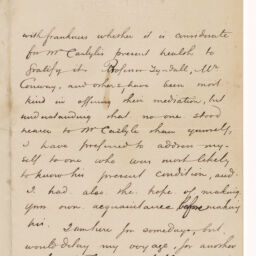 with frankness whether it is considerate
for Mr Carlyle's present health to
gratify it. Professor Tyndall, Mr
Conway, and others have been most
kind in offering their mediation, but
understanding that no one stood
nearer to Mr Carlyle than yourself,
I have preferred to address my-
self to one who was most likely
to know his present condition, and
I had also the hope of making
your own acquaintance before making
his.
I am here for some days, but
would delay my voyage for another